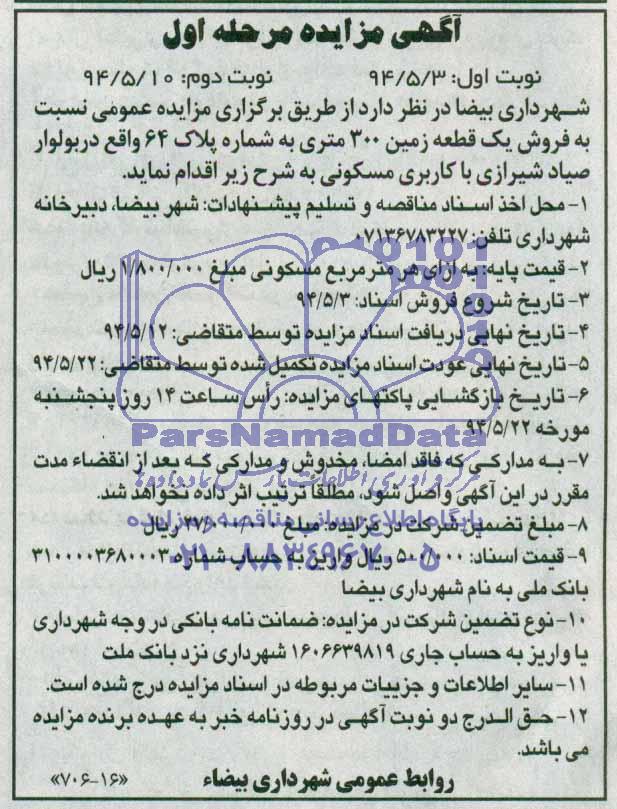 آگهی مزایده مرحله اول
نوبت اول: ۹۴/۵/۳ نوبت دوم: ۹۴/۵/۱۰
شهرداری بیضا در نظر دارد از طریق برگزاری مزایده عمومی نسبت
به فروش یک قطعه زمین ۳۰۰ متری به شماره پلاک ۶۴ واقع دربولوار
صیاد شیرازی با کاربری مسکونی به شرح زیر اقدام نماید.
۱- محل اخذ اسناد مناقصه و تسلیم پیشنهادات: شهر بیضا، دبیرخانه
شهرداری تلفن: ۰۷۱۳۶۷۸۳۲۲۷
۲- قیمت پایه: به ازای هر متر مربع مسکونی مبلغ ۱/۸۰۰/۰۰۰ ریال
۳- تاریخ شروع فروش اسناد: ۹۴/۵/۳
۴- تاریخ نهایی دریافت اسناد مزایده توسط متقاضی: ۹۴/۵/۱۲
۵- تاریخ نهایی عودت اسناد مزایده تکمیل شده توسط متقاضی: ۹۴/۵/۲۲
۶- تاریخ بازگشایی پاکتهای مزایده: رأس ساعت ۱۴ روز پنجشنبه
مورخه ۹۴/۵/۲۲
ParsNamadData
۷- به مدارکی که فاقد امضا، مخدوش و مدارکی که بعد از انقضاء مدت
مقرر در این آگهی واصل شود، مطلقا ترتیب اثر داده نخواهد شد.
پایگاه اطلاع رسانی مناقصه و مزایده
۸- مبلغ تضمین شرکت در مزایده: مبلغ ریال
۰۲۱-۸۸۳۴۹۶۷۰-۵
۹- قیمت اسناد: ۵۰۰/۰۰۰ ریال واریز به حساب شماره ۳۱۰۰۰۰۳۶۸۰۰۰۳
بانک ملی به نام شهرداری بیضا
۱۰- نوع تضمین شرکت در مزایده: ضمانت نامه بانکی در وجه شهرداری
یا واریز به حساب جاری ۱۶۰۶۶۳۹۸۱۹ شهرداری نزد بانک ملت
۱۱- سایر اطلاعات و جزییات مربوطه در اسناد مزایده درج شده است.
۱۲- حق الدرج دو نوبت آگهی در روزنامه خبر به عهده برنده مزایده
می باشد.
روابط عمومی شهرداری بیضاء «۷۰۶-۱۶»